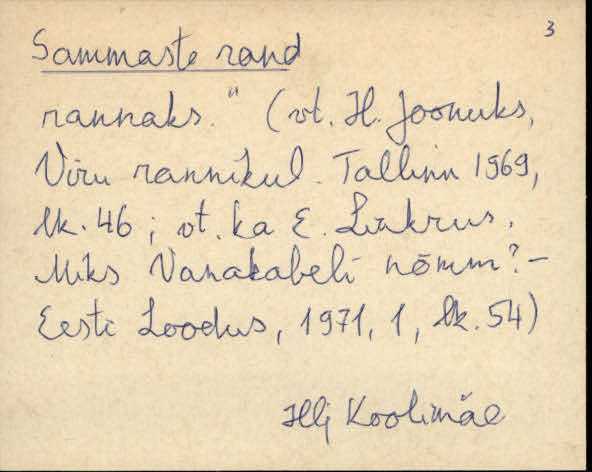 3
Sammaste rand
rannaks." (vt. H. Joonuks,
Viru rannikul. Tallinn 1969,
lk. 46; vt. ka E. Linkrus.
Miks Vanakabeli nõmm? -
Eesti Loodus, 1971, 1, lk. 54)
Koolimäe